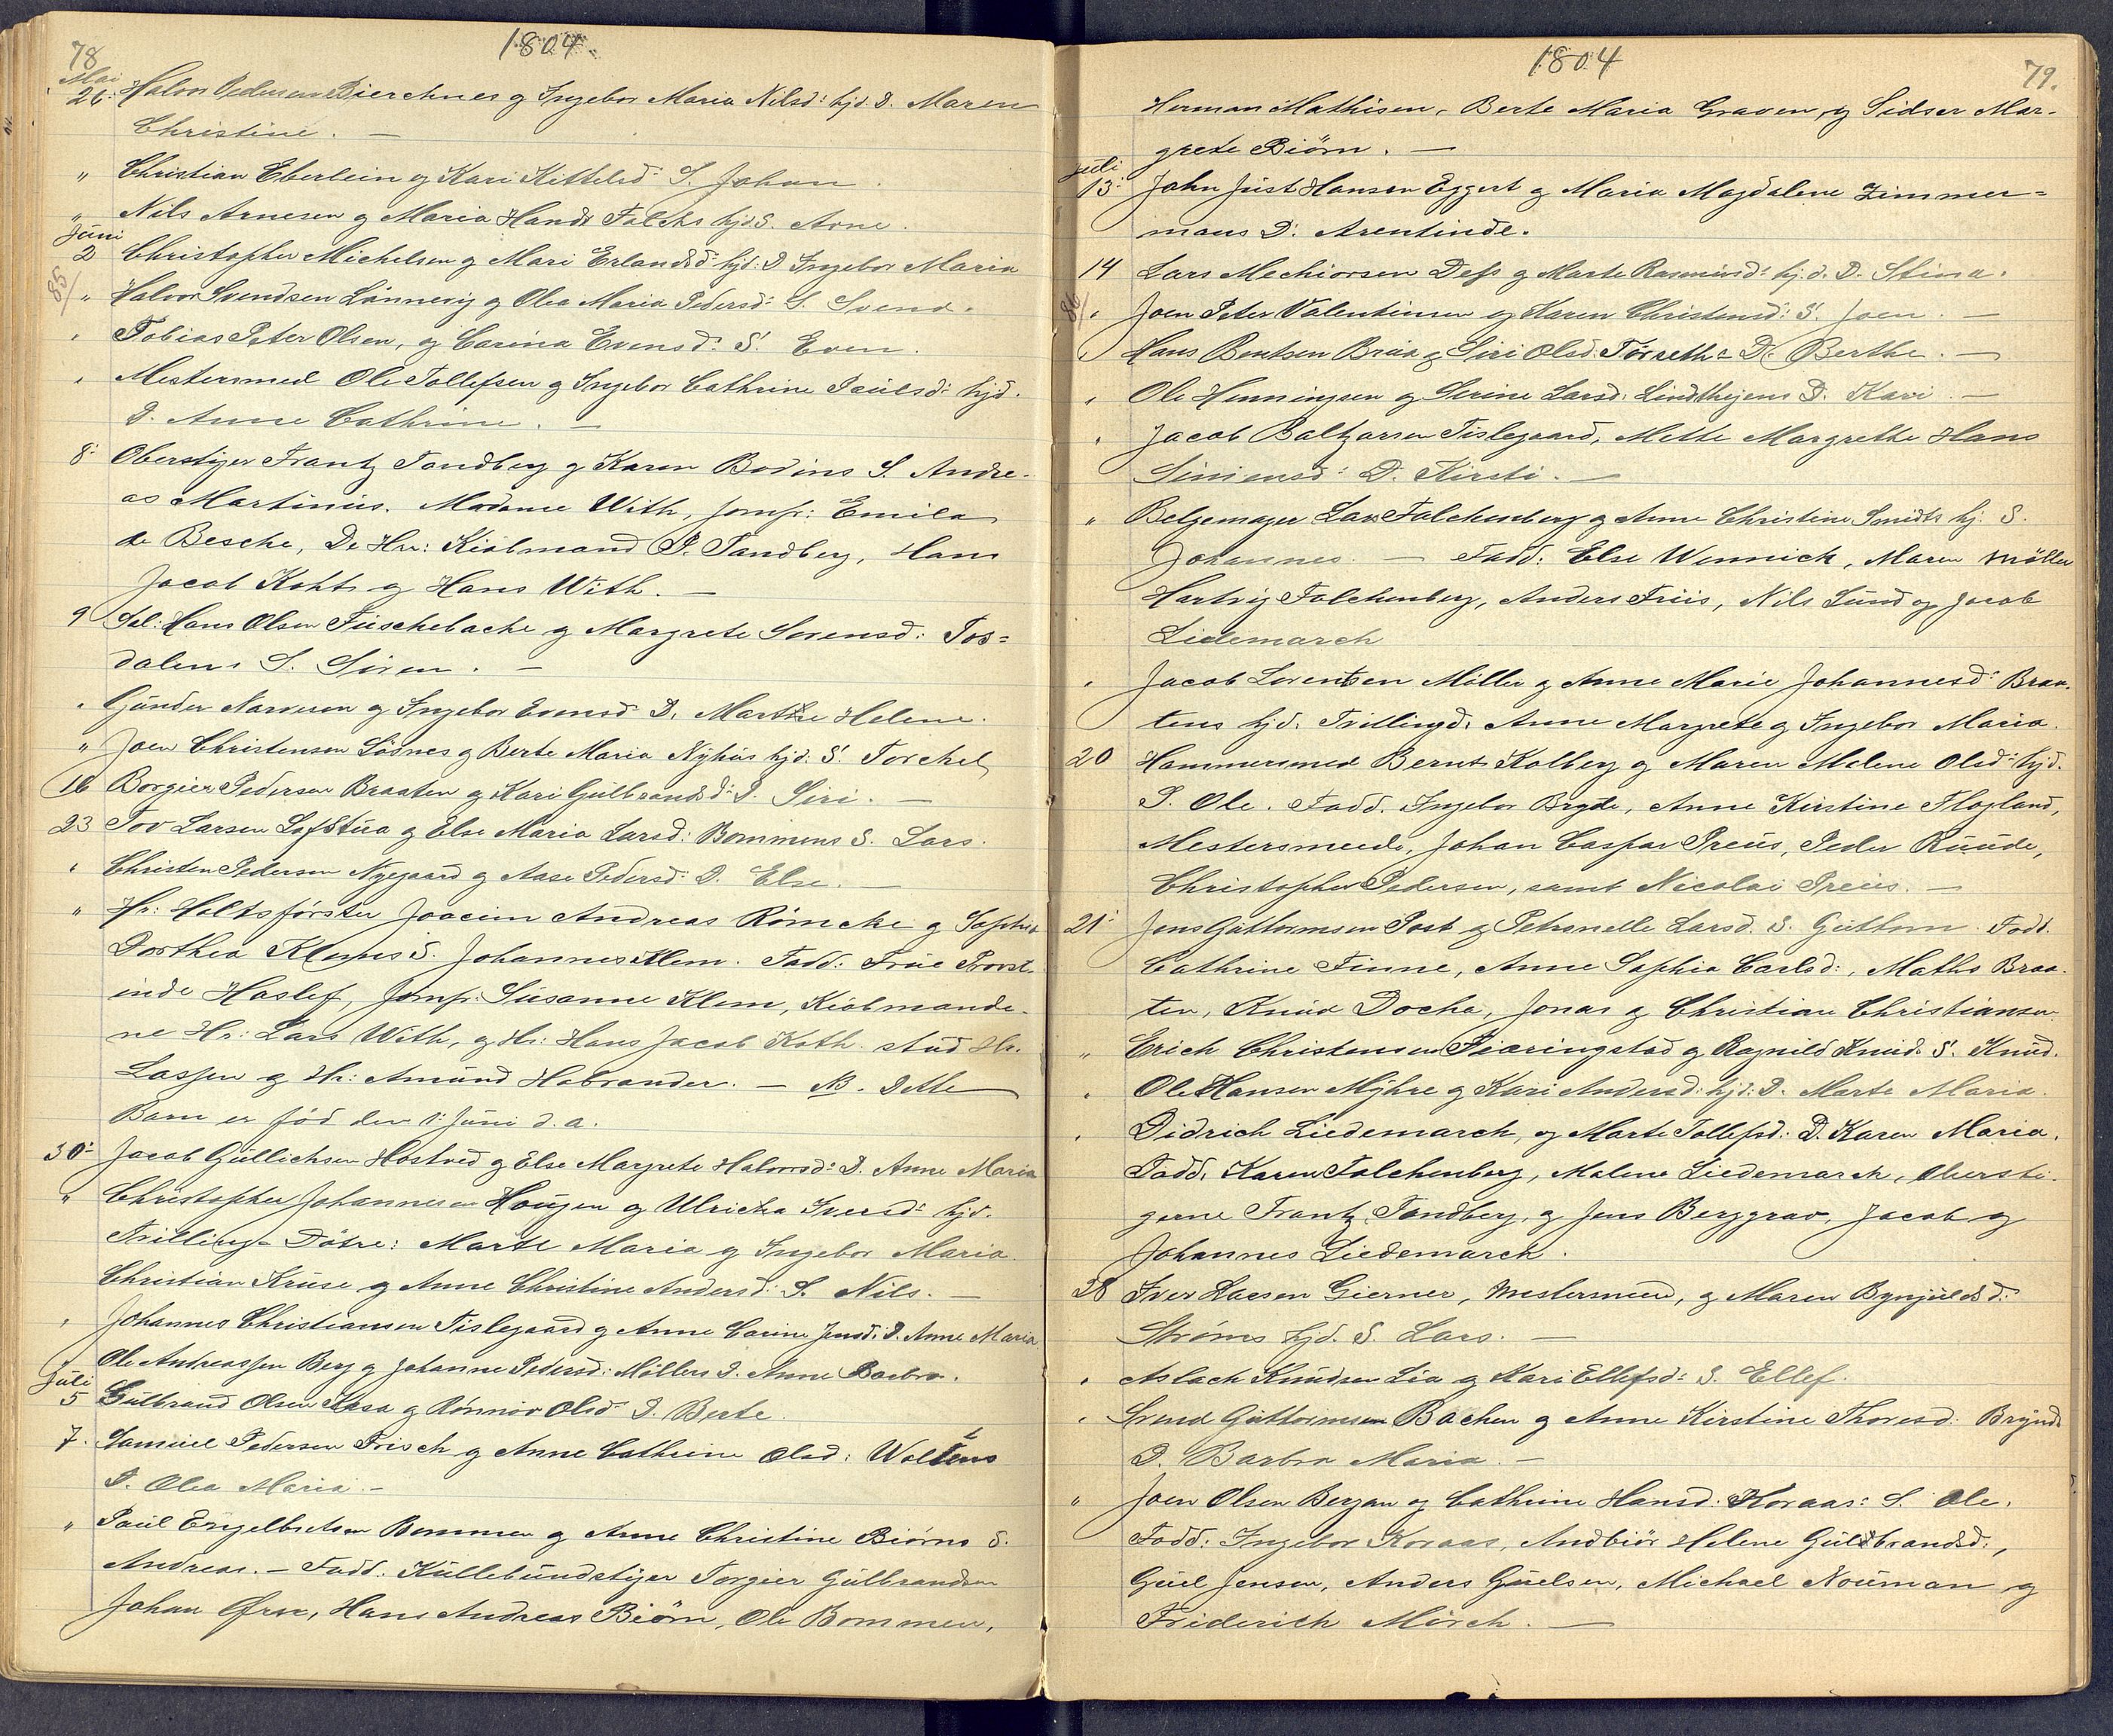 78
1804.
Mai
26: Halvor Pedersen Bierchnes og Ingebor Maria Nilsd: hjd. D. Maren
Christine. —
" Christian Eberlein og Kari Kittelsd: S. Johan.
" Nils Arnesen og Maria Hansd Falchs hjd. S. Arne.
Juni
2 Christopher Michelsen og Mari Erlandsd: hjd: D Ingebor Maria
85/
" Halvor Svendsen Lønnevig og Olea Maria Pedersd: S. Svend.
" Tobias Peter Olsen, og Carina Evensd: S. Even.
" Mestersmed Ole Tollefsen og Ingebor Cathrine Paulsd: hjd.
D. Anne Cathrine. —
8: Oberstiger Frantz Sandberg og Karen Bodins S. Andre-
as Martinus. Madame With, Jomfr: Emila
de Besche, De Hrr: Kiøbmand P. Sandberg, Hans
Jacob Koht og Hans With. —
9 Sal: Hans Olsen Fuschebache og Margrete Sorensd: Tos=
dalens S. Sören. —
" Gunder Narvesen og Ingebor Evensd D. Marthe Helene.
" Joen Christensen Lösnes og Berte Maria Nyhus hjd: S. Torchel
16 Borgier Pedersen Braaten og Kari Gulbrandsd: D. Siri. —
23 Tov Larsen Lofstua og Else Maria Larsd: Bommens S. Lars.
" Christen Pedersen Nygaard og Aase Pedersd: D. Else. —
" Hr: Holtsförster Joacim Andreas Römcke og Sophia
Dorthea Klems S. Johannes Klem. Fadd: Frue Provst-
inde Haslef, Jomfr: Susanne Klem, Kiøbmænde-
ne Hr: Lars With, og Hr: Hans Jacob Koth. stud Hr.
Lassen og Hr: Amund Habrander. — NB. Dette
Barn er fød den 1: Juni d. a.
30: Jacob Gullichsen Hostved og Else Margrete Halvorsd: D. Anne Maria
" Christopher Johannesen Hougen og Ulricha Iversd: hjd.
Trilling- Döttre: Marte Maria og Ingebor Maria
Christian Kruse og Anne Christine Andersd: S. Nils. —
" Johannes Christiansen Tislegaard og Anne Carine Jensd: D. Anne Maria
" Ole Andreassen Berg og Johanne Pedersd: Möllers D. Anne Barbra.
Juli
5 Gulbrand Olsen Kasa og Rönnov Olsd D. Berte.
7. Samuel Pedersen Frisch og Anne Cathrine Olsd: Woltens
D. Olea Maria. —
" Paul Engelbretsen Bommen og Anne Christine Biörns S.
Andreas. — Fadd: Kullebundstiger Torgier Gulbrandsen
Johan Ørn, Hans Andreas Biörn, Ole Bommen,
1804
79.
Herman Mathisen, Berte Maria Graven, og Sidser Mar-
grete Biörn. —
Juli
13: John Just Hansen Eggert og Maria Magdalene Zimmer=
mans D: Arentinde.
14 Lars Mechiorsen Dess og Marte Rasmusd: hj. d. D. Stina.
86/
" Joen Peter Valentinsen og Karen Christensd: S. Joen. —
" Hans Bentsen Braa og Siri Olsd: Törseth: D. Berthe. —
" Ole Henningsen og Serine Larsd. Lindthejens D. Kari. —
" Jacob Baltzarsen Tislegaard, Mette Margrethe Hans
Simensd: D. Kirsti. —
" Belgemager Lars Falchenberg og Anne Christine Smidts hj. S.
Johannes. — Fadd: Else Wennich, Maren Möller
Hartvig Falchenberg, Anders Friis, Nils Lund og Jacob
Liedemarch
" Jacob Lorentsen Möller og Anne Marie Johannesd: Braa-
tens hjd. Trillingd: Anne Margrete og Ingebor Maria.
20 Hammersmed Bernt Kolberg og Maren Malene Olsd: hjd.
S. Ole. Fadd. Ingebor Brgde, Anne Kirstine Flogland,
Mestersmede, Johan Caspar Preus, Peder Ruude,
Christopher Pedersen, samt Nicolai Preus. —
21: Jens Guttormsen Post og Petronelle Larsd. S. Guttom. Fadd.
Cathrine Finne, Anne Sophia Carlsd:, Maths Braa-
ten, Knud Docka, Jonas og Christian Christiansen
" Erich Christensen Fieringstad og Ragnild Knud: S. Knud.
" Ole Hansen Myhre og Kari Andersd: hjd: D. Marte Maria.
" Didrich Liedemarch, og Marte Tollefsd: D. Karen Maria.
Fadd. Karen Falchenberg, Malene Liedemarch, Obersti-
gerne Frantz Sandberg, og Jens Berggrav, Jacob og
Johannes Liedemarck.
28 Iver Larsen Gierner, Mestersmed, og Maren Bynjulsd:
Ströms hjd. S. Lars. —
" Aslach Knudsen Lia og Kari Ellefsd: S. Ellef.
" Svend Guttormsen Bachen og Anne Kirstine Thoresd: Brynds
D. Barbra Maria. —
" Joen Olsen Bergan og Cathrine Hansd: Koraas: S. Ole.
Fadd: Ingebor Koraas, Andbiör Helene Gulbrandsd:,
Guul Jensen, Anders Guulsen, Michael Nouman og
Friderich Mörch. —